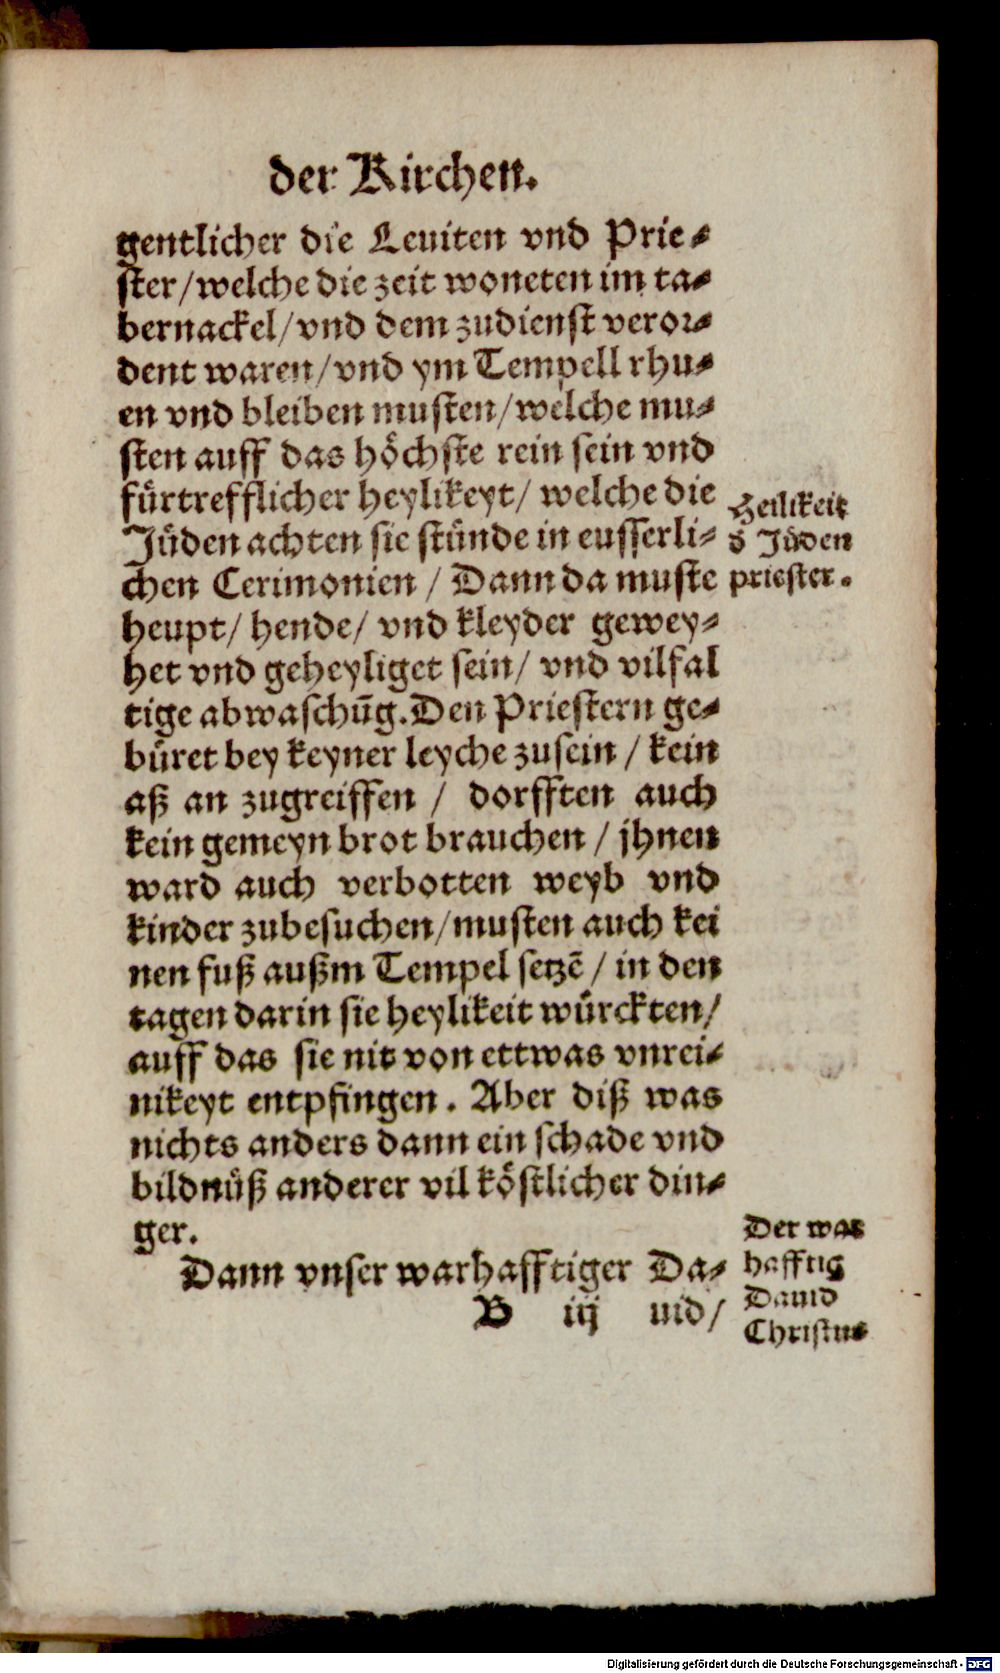 der Kirchen.
gentlicher die Leuiten vnd Prie⸗
ster/welche die zeit woneten im ta⸗
bernackel/vnd dem zudienst veror⸗
dent waren/vnd ym Tempell rhu⸗
en vnd bleiben musten/welche mu⸗
sten auff das hoͤchste rein sein vnd
fuͤrtrefflicher heylikeyt/ welche die
Juͤden achten sie stuͤnde in eusserli⸗
chen Cerimonien / Dann da muste
heupt/ hende/ vnd kleyder gewey⸗
het vnd geheyliget sein/ vnd vilfal
tige abwaschūg. Den Priestern ge⸗
buͤret bey keyner leyche zusein / kein
aß an zugreiffen / dorfften auch
kein gemeyn brot brauchen / jhnen
ward auch verbotten weyb vnd
kinder zubesuchen/musten auch kei
nen fuß außm Tempel setzē / in den
tagen darin sie heylikeit wuͤrckten/
auff das sie nit von ettwas vnrei⸗
nikeyt entpfingen. Aber diß was
nichts anders dann ein schade vnd
bildnuͤß anderer vil koͤstlicher din⸗
ger.
Dann vnser warhafftiger Da⸗
B iij uid/
Heilikeit
d̕ Juͤden
priester.
Der war
hafftig
Dauid
Christus
Digitalisierung gefördert durch die Deutsche Forschungsgemeinschaft - DFG